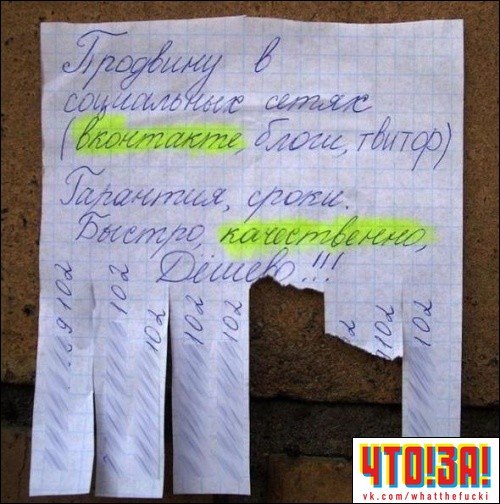 Продвину в
социальных сетях
(вконтакте, блоги, твитор)
Гарантия, сроки.
Быстро, качественно,
Дёшево!!!
102
102
102
102
102
2
102
102
ЧТО!ЗА!
vk.com/whatthefucki